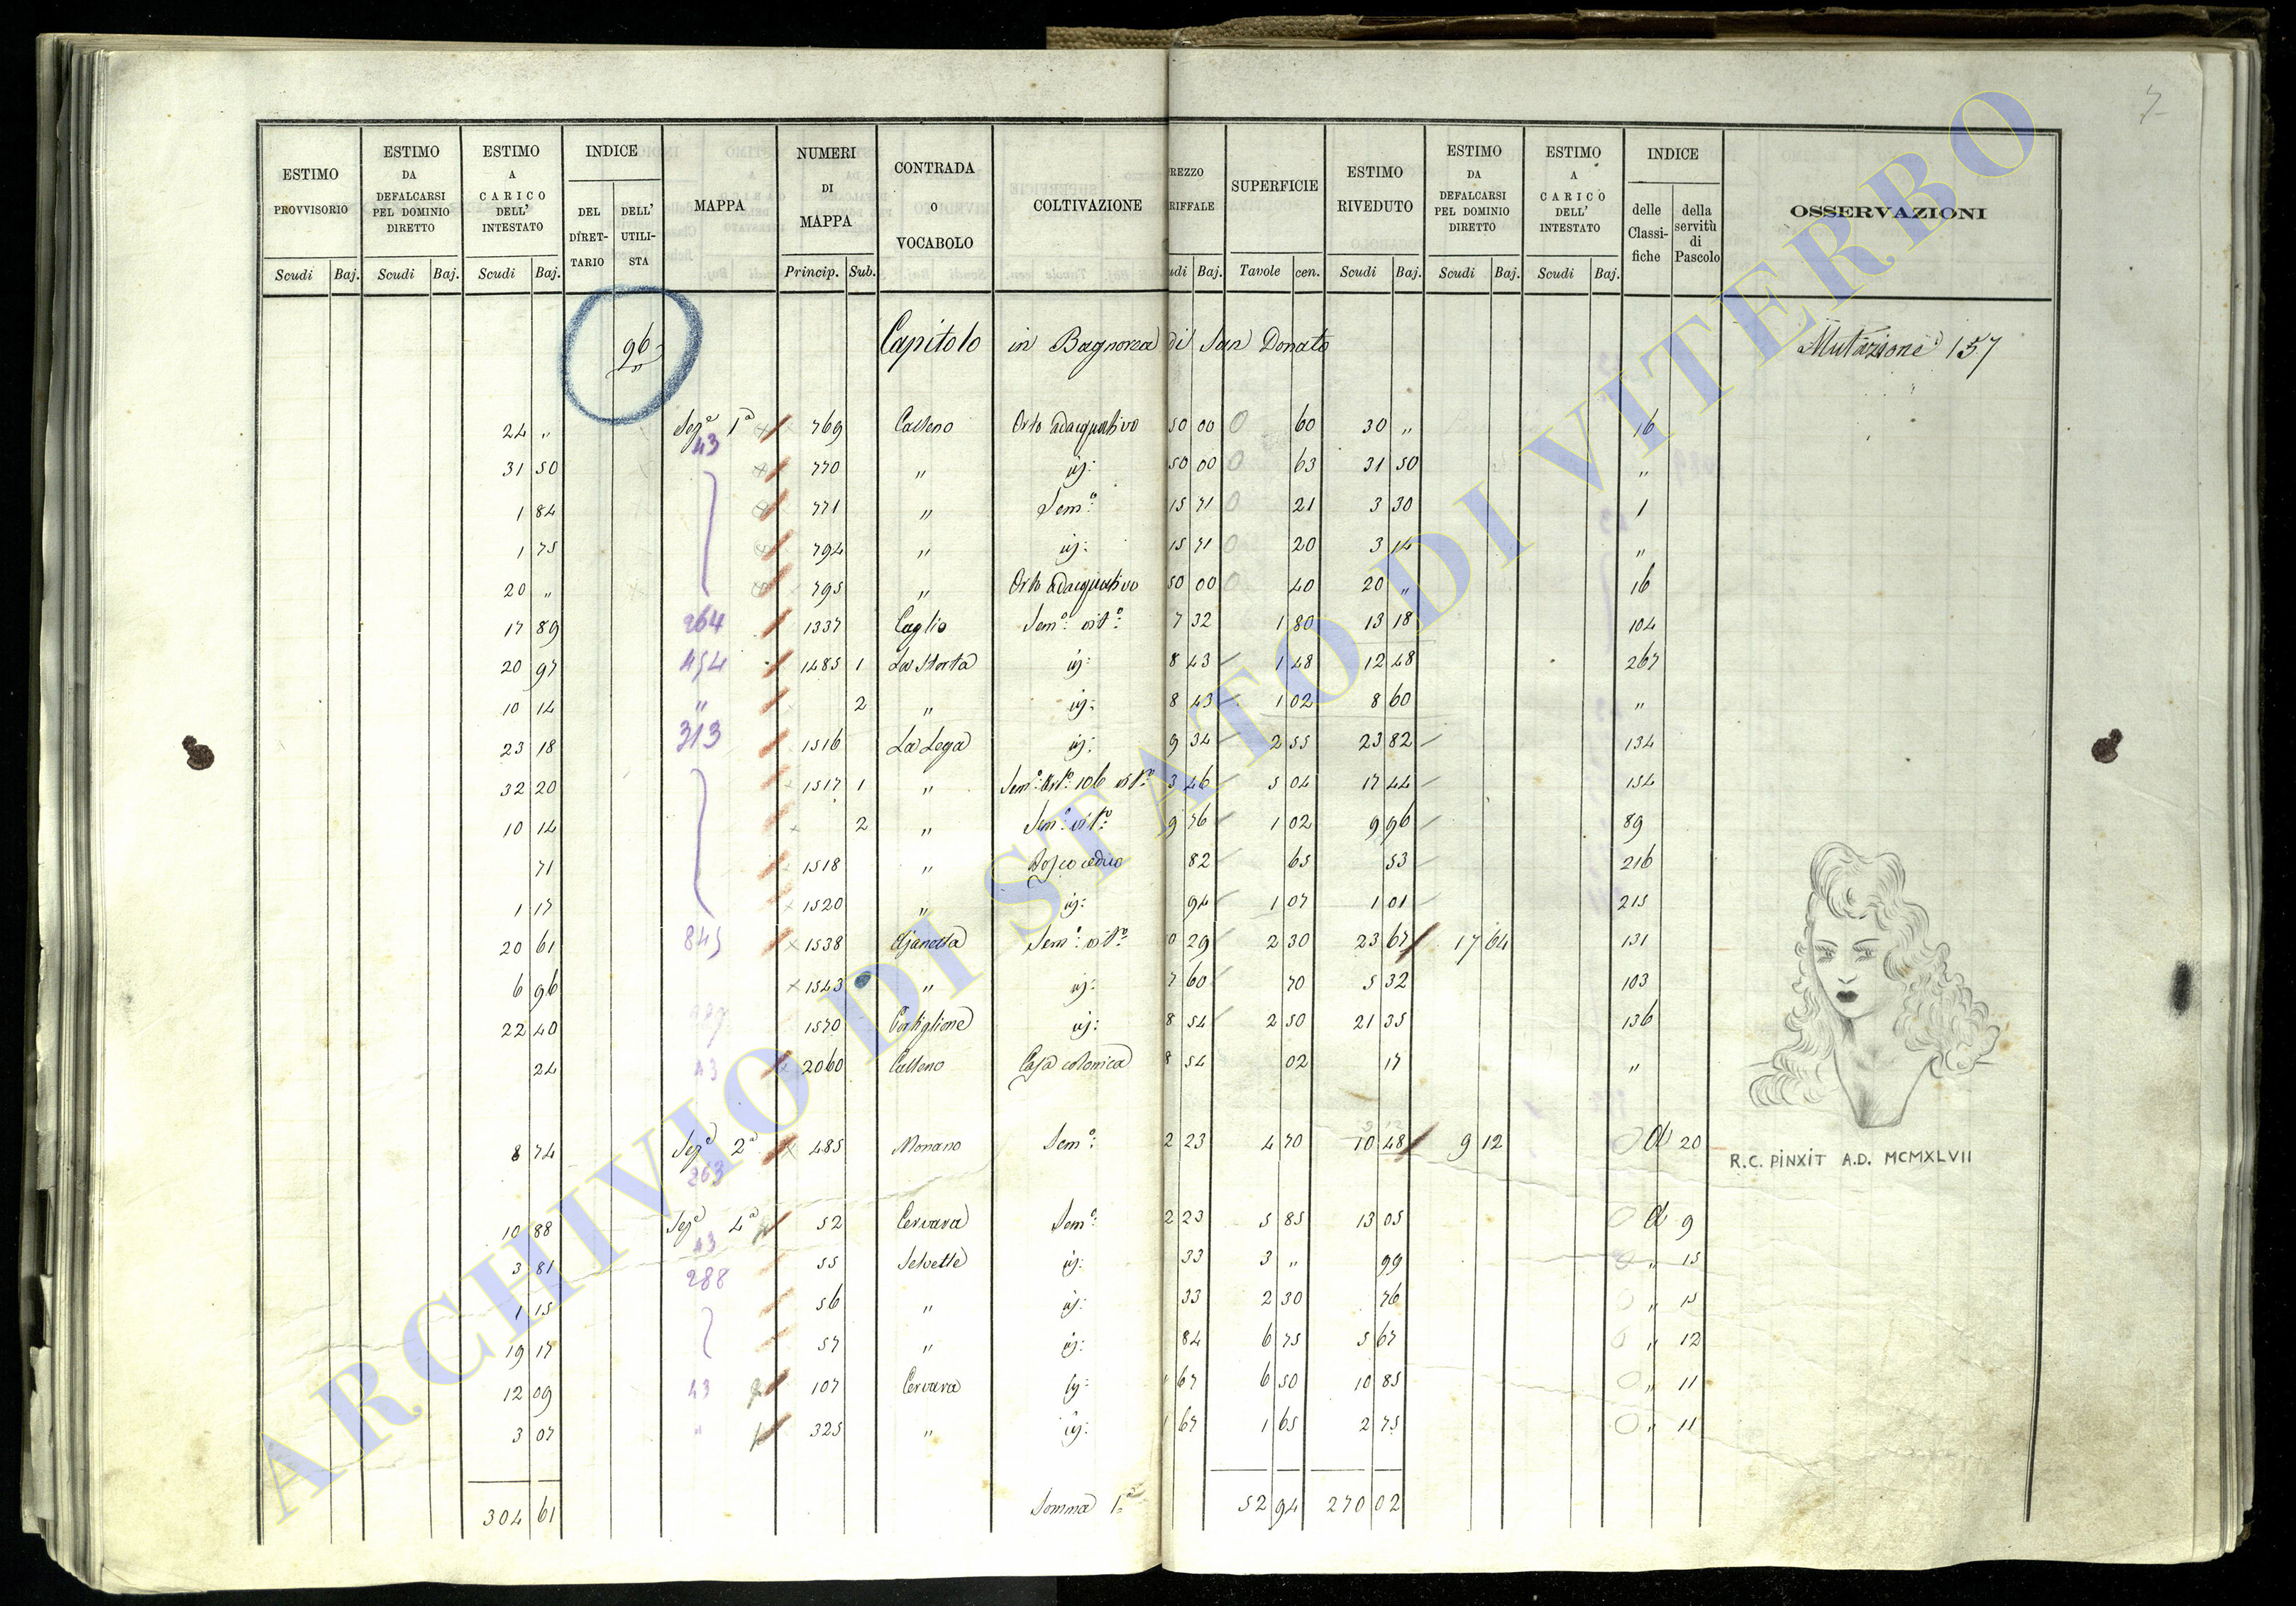 7
ESTIMO PROVVISORIO
ESTIMO DA DEFALCARSI PEL DOMINIO DIRETTO
ESTIMO A CARICO DELL' INTESTATO
INDICE
DEL DIRET-TARIO
DELL' UTILI-STA
MAPPA
NUMERI DI MAPPA
CONTRADA O VOCABOLO
COLTIVAZIONE
REZZO RIFFALE
SUPERFICIE
ESTIMO RIVEDUTO
ESTIMO DA DEFALCARSI PEL DOMINIO DIRETTO
ESTIMO A CARICO DELL' INTESTATO
INDICE
delle Classi-fiche
della servitù di Pascolo
OSSERVAZIONI
Scudi Baj. Scudi Baj. Scudi Baj. Princip. Sub. udi Baj. Tavole cen. Scudi Baj. Scudi Baj. Scudi Baj.
96 Capitolo in Bagnorea di San Donato Mutazione 157
24 " Sezᵉ 1ª 769 Calleno Orto adacquativo 50 00 0 60 30 " 16
43
31 50 770 " id: 50 00 0 63 31 50 "
1 84 771 " Semº: 15 71 0 21 3 30 1
1 75 794 " id: 15 71 0 20 3 14 "
20 " 795 " Orto adacquativo 50 00 0 40 20 " 16
17 89 264 1337 Caglio Semº: vitº: 7 32 1 80 13 18 104
20 97 454 1485 1 La Storta id: 8 43 1 48 12 48 267
10 14 " 2 " id: 8 43 1 02 8 60 "
23 18 313 1516 La Lega id: 9 34 2 55 23 82 134
32 20 1517 1 " 3 46 5 04 17 44 154
10 14 2 " Semº: vitº: 9 76 1 02 9 96 89
71 1518 " Bosco ceduo 82 65 53 216
1 17 1520 " id: 94 1 07 1 01 215
20 61 845 1538 Semº: vitº: 0 29 2 30 23 67 17 64 131
6 96 1543 " id: 7 60 70 5 32 103
22 40 1570 id: 8 54 2 50 21 35 136
24 43 2060 Calleno Casa colonica 8 54 02 17 "
8 74 Sezᵉ 2ª 485 Monano Semº: 2 23 4 70 10 48 9 12 0 A 20
263
R.C. PINXIT A.D. MCMXLVII
10 88 Sezᵉ 4ª 52 Cervara Semº: 2 23 5 85 13 05 0 A 9
43
3 81 288 55 Selvette id: 33 3 " 99 0 " 15
1 15 56 " id: 33 2 30 76 0 " 15
19 17 57 " id: 84 6 75 5 67 0 " 12
12 09 43 107 Cervara id: 1 67 6 50 10 85 0 " 11
3 07 " 325 " id: 1 67 1 65 2 75 0 " 11
304 61 Somma 1ª 52 94 270 02
ARCHIVIO DI STATO DI VITERBO